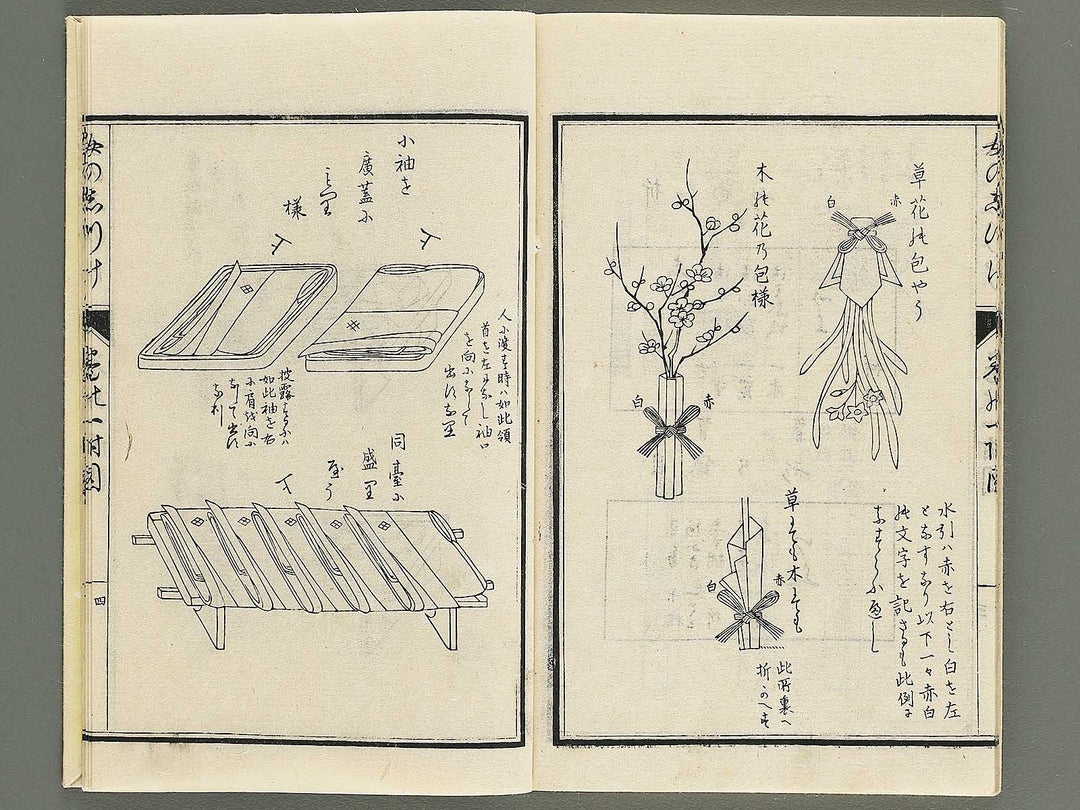 草花の包やう
赤
白
木の花乃包様
白
赤
水引ハ赤を右とし白を左
となすなり以下一々赤白
の文字を記さゞるも此例に
なすらふ遍し
草にても木にても
赤
白
此所裏へ
折かへす
小袖を
廣蓋に
様
人に渡す時ハ如此領
首を左になし袖口
を向になして
出すなり
披露するにハ
如此袖を右
に肩を向に
なして出す
なり
同臺に
盛里
やう
四